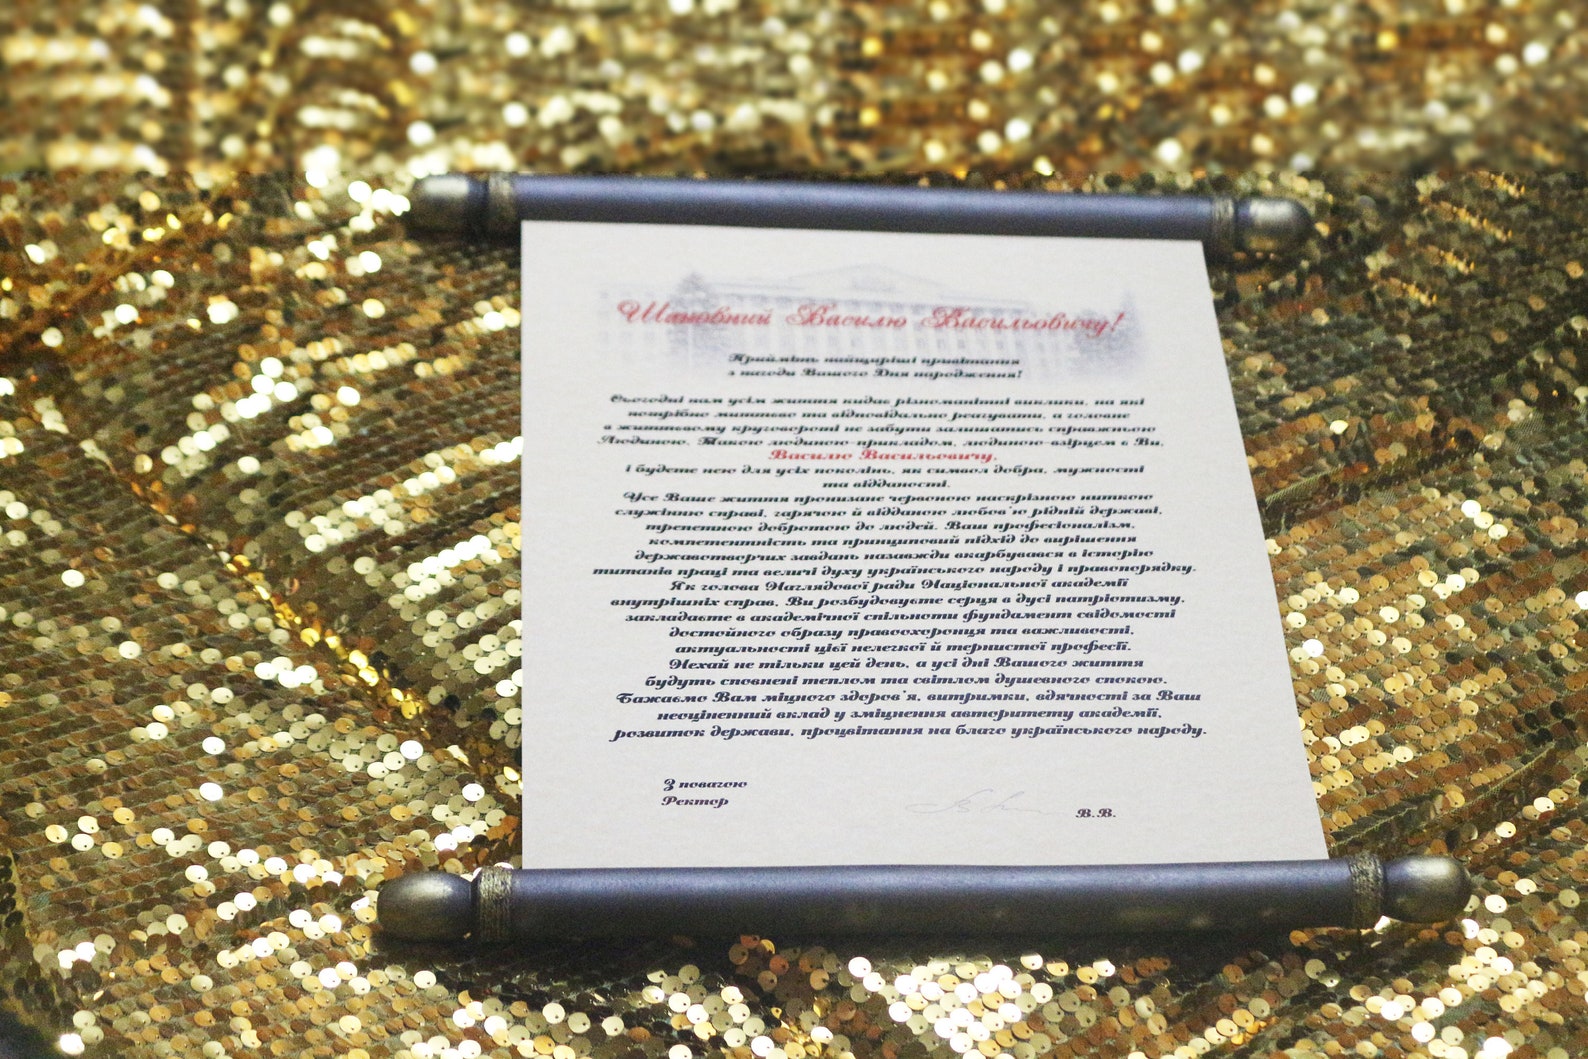 Шановний Василю Васильовичу!
Прийміть найщиріші привітання
з нагоди Вашого Дня народження!
Сьогодні нам усім життя кидає різноманітні виклики, на які
потрібно миттєво та відповідально реагувати, а головне
в життєвому круговороті не забути залишатись справжньою
Людиною. Такою людиною-прикладом, людиною-взірцем є Ви,
Василю Васильовичу,
і будете нею для усіх поколінь, як символ добра, мужності
та відданості.
Усе Ваше життя пронизане червоною наскрізною ниткою
служінню справі, гарячою й відданою любов'ю рідній державі,
трепетною добротою до людей. Ваш професіоналізм,
компетентність та принциповий підхід до вирішення
державотворчих завдань назавжди вкарбувався в історію
титанів праці та величі духу українського народу і правопорядку.
Як голова Наглядової ради Національної академії
внутрішніх справ, Ви розбудовуєте серця в дусі патріотизму,
закладаєте в академічної спільноти фундамент свідомості
достойного образу правоохоронця та важливості,
актуальності цієї нелегкої й тернистої професії.
Нехай не тільки цей день, а усі дні Вашого життя
будуть сповнені теплом та світлом душевного спокою.
Бажаємо Вам міцного здоров'я, витримки, вдячності за Ваш
неоціненний вклад у зміцнення авторитету академії,
розвиток держави, процвітання на благо українського народу.
З повагою
Ректор В.В.